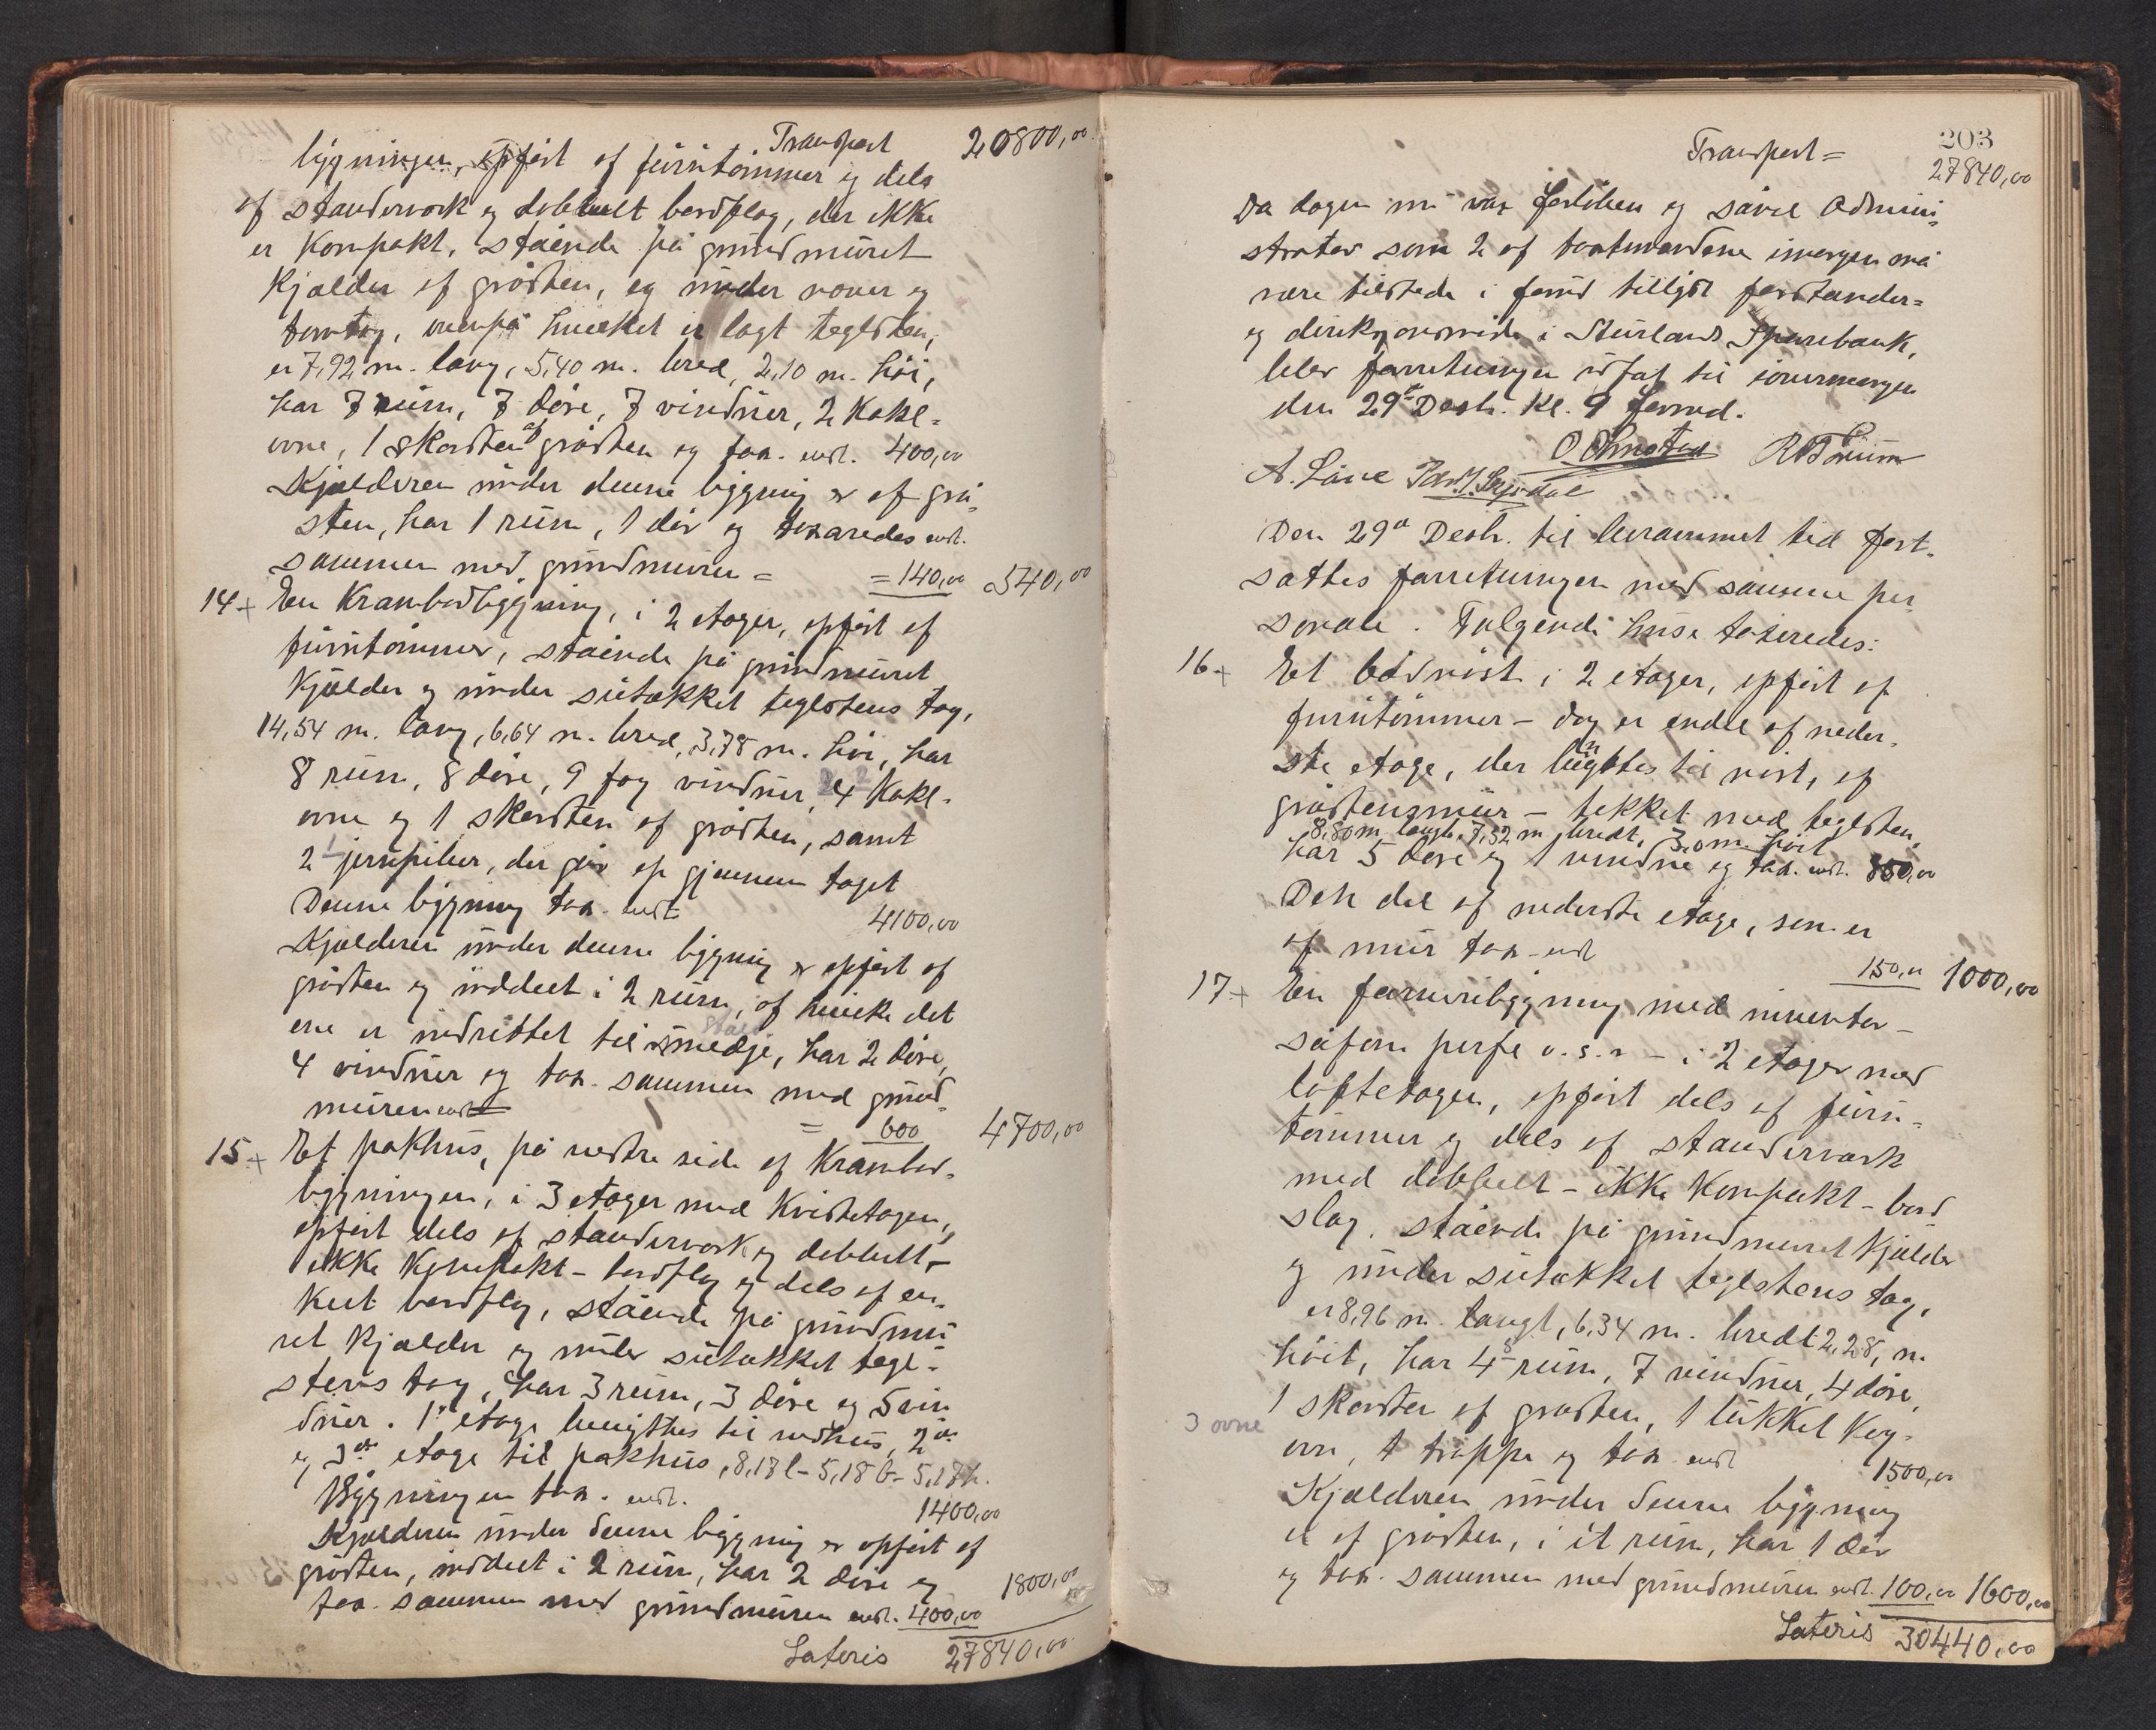 Transport 20800,00
bygningen, opført af furutømmer og dels
af standerverk og dobbelt bordslag, der ikke
er kompakt, stående på grundmuret
kjælder af gråsten, og under
tag, ovenpå hvilket er lagt teglsten,
er 7,92 m. lang, 5,40 m. bred, 2,10 m. høi,
har 7 rum, 7 døre, 7 vinduer, 2 kakel-
ovne, 1 skorsten af gråsten og tax. endt. 400,00
Kjælderen under denne bygning er af grå-
sten, har 1 rum, 1 dør og taxeredes endt.
sammen med grundmuren = = 140,00 540,00
14 + En Krambodbygning, i 2 etager, opført af
furutømmer, stående på grundmuret
kjælder og under sutækket teglstens tag,
14,54 m. lang, 6,64 m. bred, 3,78 m. høi, har
8 rum, 8 døre, 9 fag vinduer, 4 kakel-
ovne og 1 skorsten af gråsten, samt
2 jernpiber, der går op gjennem taget
Denne bygning tax. endt 4100,00
Kjælderen under denne bygning er opført af
gråsten og inddelt i 2 rum, af hvilke det
ene er indrettet til smedje, har 2 døre,
4 vinduer og tax. sammen med grund-
muren endt = 600 4700,00
15 + Et pakhus, på nedre side af Krambod-
bygningen, i 3 etager med kvistetagen,
opført dels af standerverk og dobbelt -
ikke kompakt - bordslag og dels af en-
kelt bordslag, stående på grundmu-
ret kjælder og under sutækket tegl-
stens tag, har 3 rum, 3 døre og 5 vin
duer. 1ste etage benyttes til vedhus, 2den
og 3die etage til pakhus, 8,18 l - 5,18 b - 5,17 h.
Bygningen tax. endt. 1400,00
Kjælderen under denne bygning er opført af
gråsten, inddelt i 2 rum, har 2 døre og
tax. sammen med grundmuren endt. 400,00 1800,00
Lateris 27840,00
203
Transport = 27840,00
Da dagen nu var forløben og såvel admini-
strator som 2 af taxtmændene imorgen må
være tilstede i forstander-
og i Sparebank,
blev forretningen udsat til iovermorgen
den 29de Desbr. kl. 9 formd.
Den 29de Desbr. til berammet tid fort-
sattes forretningen med samme per-
sonale. Følgende huse taxeredes:
16 + Et bådnøst i 2 etager, opført af
furutømmer - dog er endel af neder-
ste etage, der benyttes til nøst, af
gråstensmur - tækket med teglsten,
8,80 m. langt, 7,52 m bredt, 3,0 m høit
har 5 døre og 1 vindue og tax. endt. 850,00
Den del af nederste etage, som er
af mur tax. endt 150,00 1000,00
17 + En bygning med
- i 2 etager med
loftetagen, opført dels af furu-
tømmer og dels af standerverk
med dobbelt - ikke kompakt - bord
slag, stående på grundmuret kjælder
og under sutækket teglstens tag,
er 8,96 m. langt, 6,34 m. bredt 2,28, m.
høit, har 4 rum, 7 vinduer, 4 døre,
1 skorsten af gråsten, 1 lukket
3 ovne
ovn, 1 trappe og tax. endt 1500,00
Kjælderen under denne bygning
er af gråsten, i ét rum, har 1 dør
og tax. sammen med grundmuren endt. 100,00 1600,00
Lateris 30440,00